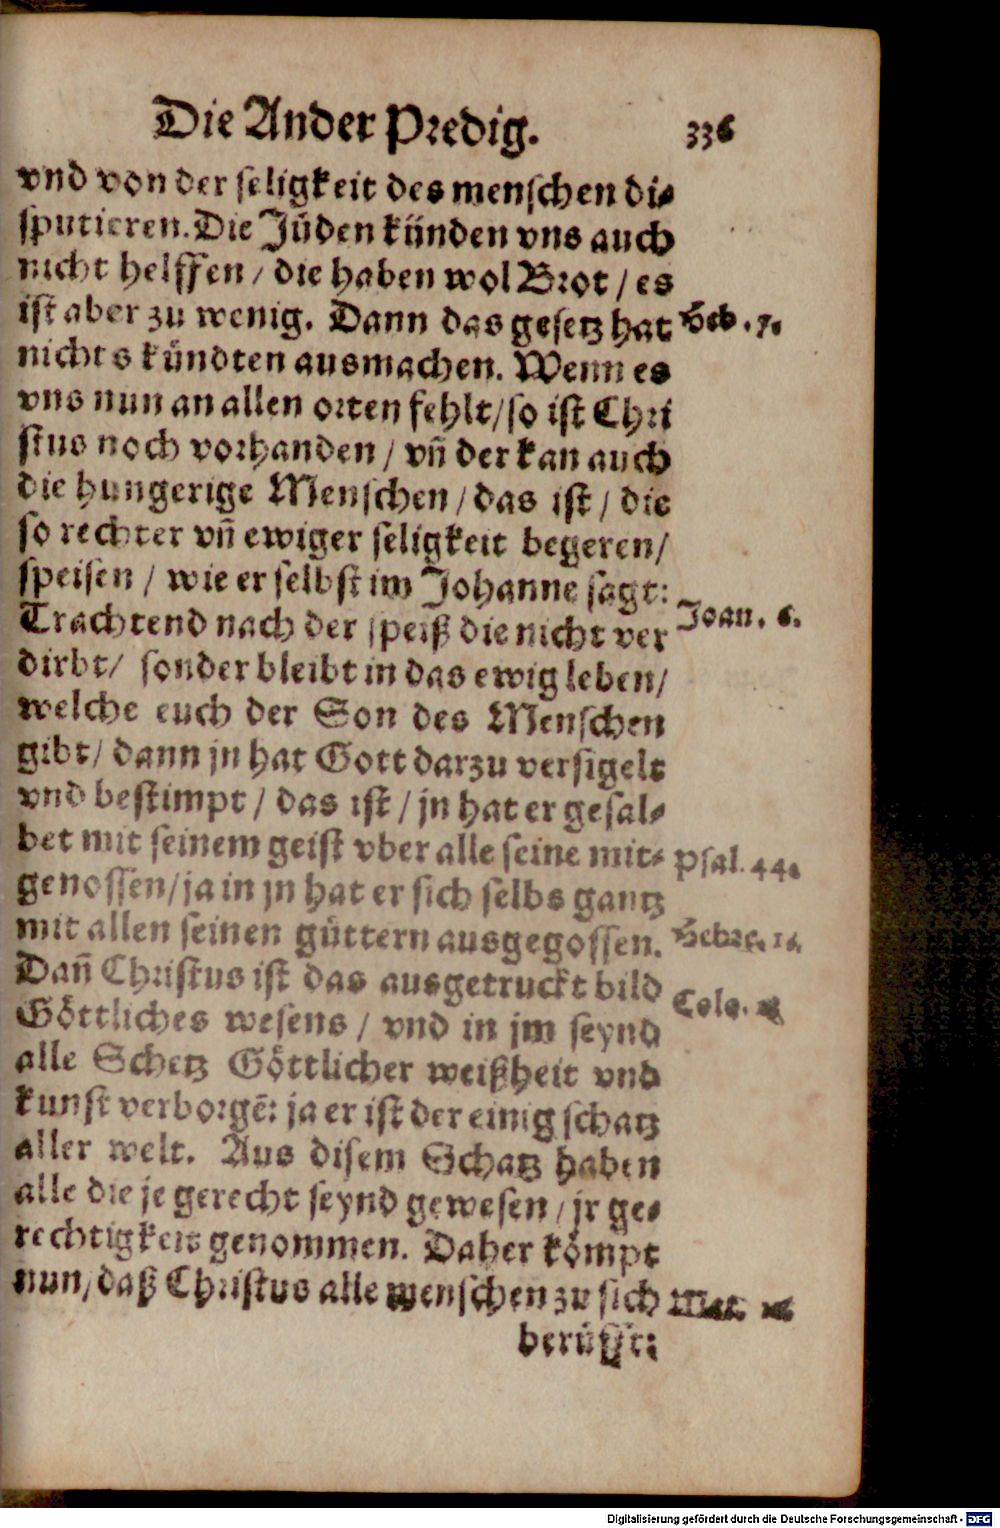 Die Ander Predig. 336
vnd von der seligkeit des menschen di⸗
sputieren. Die Jüden künden vns auch
nicht helffen / die haben wol Brot / es
ist aber zu wenig. Dann das gesetz hat Heb. 7.
nichts kündten ausmachen. Wenn es
vns nun an allen orten fehlt / so ist Chri
stus noch vorhanden / vñ der kan auch
die hungerige Menschen / das ist / die
so rechter vñ ewiger seligkeit begeren /
speisen / wie er selbst im Johanne sagt:
Trachtend nach der speiß die nicht ver Joan. 6.
dirbt / sonder bleibt in das ewig leben /
welche euch der Son des Menschen
gibt / dann jn hat Gott darzu versigelt
vnd bestimpt / das ist / jn hat er gesal⸗
bet mit seinem geist vber alle seine mit⸗ Psal. 44.
genossen / ja in jn hat er sich selbs gantz
mit allen seinen güttern ausgegossen. Hebre. 1.
Dañ Christus ist das ausgetruckt bild
Göttliches wesens / vnd in jm seynd Colo.
alle Schetz Göttlicher weißheit vnd
kunst verborgē: ja er ist der einig schatz
aller welt. Aus disem Schatz haben
alle die je gerecht seynd gewesen / jr ge⸗
rechtigkeit genommen. Daher kömpt
nun / daß Christus alle menschen zu sich Mat.
berüfft:
Digitalisierung gefördert durch die Deutsche Forschungsgemeinschaft - DFG